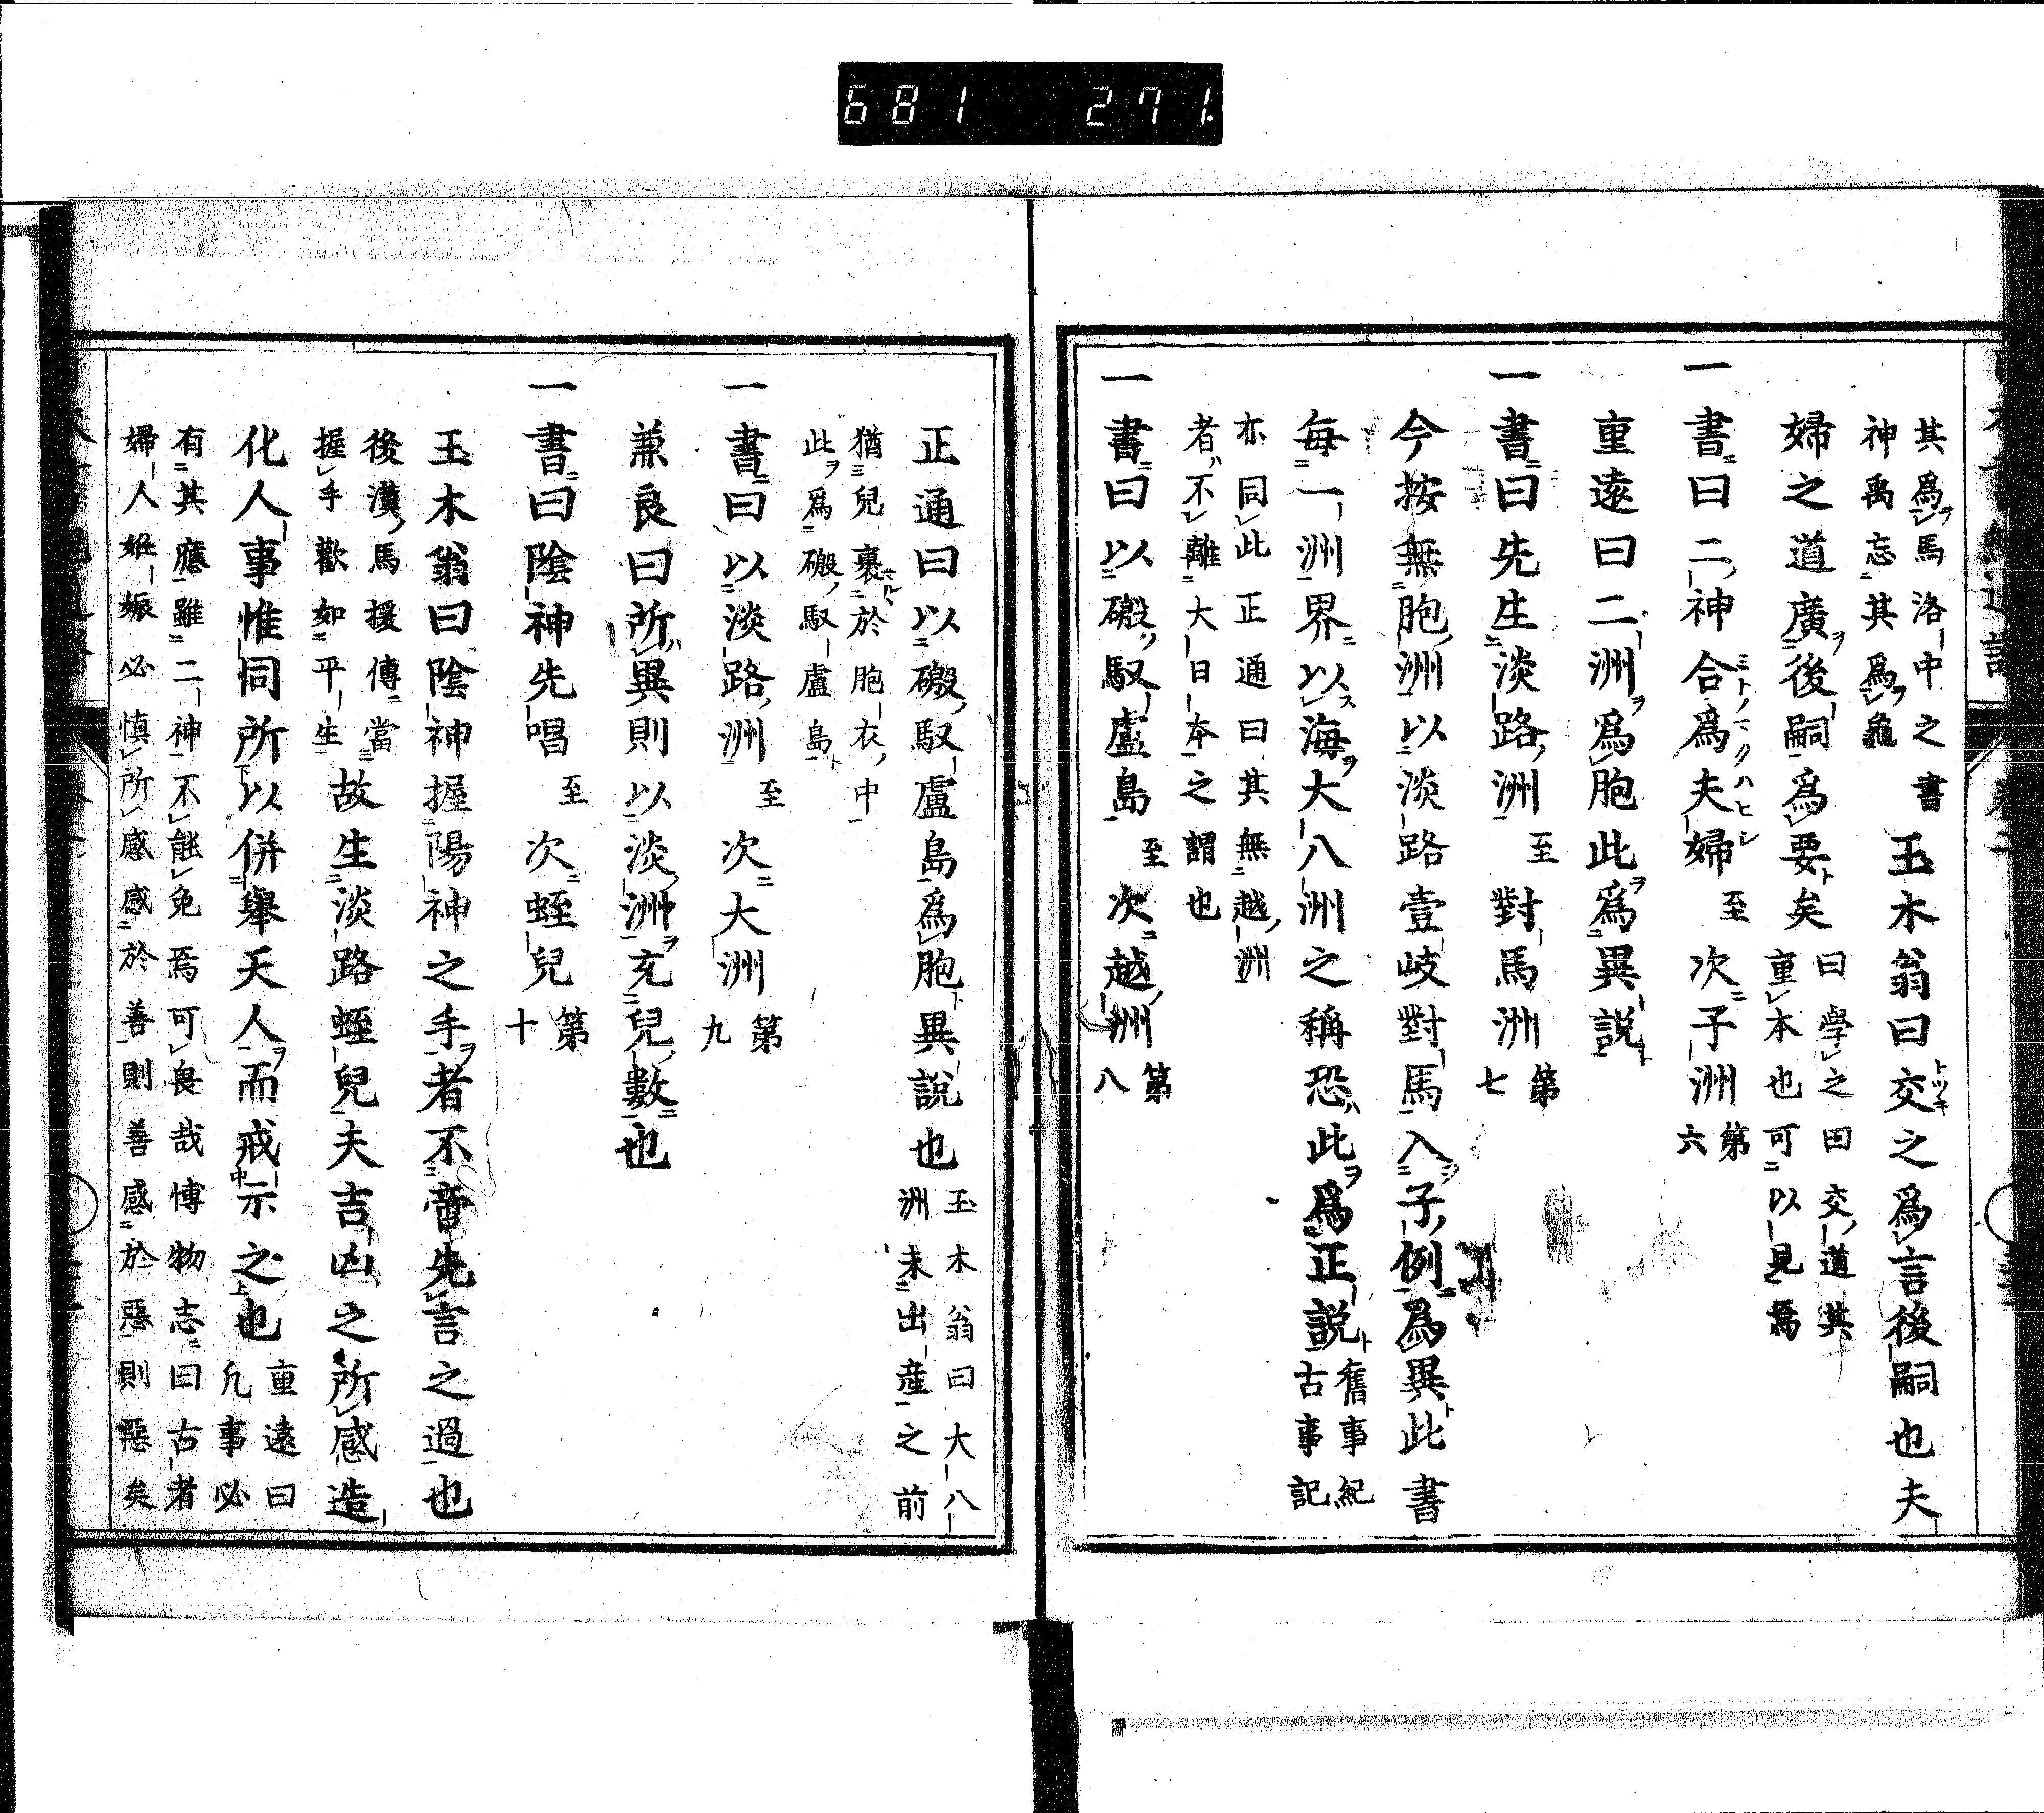 681 271.
其爲馬洛中之書
神禹忘其爲龜
玉木翁曰交之爲言後嗣也夫
婦之道廣後嗣爲要矣
曰學之曰交道其
重本也可以見焉
一書曰二神合爲夫婦至次子洲第六
重遠曰二洲爲胞此爲異説
一書曰先生淡路洲至對馬洲第七
今按無胞洲以淡路壹岐對馬入子例爲異此書
每一洲界以海大八洲之稱恐此爲正説
舊事紀
古事記
亦同此正通曰其無越洲
者不離大日本之謂也
一書曰以磤馭盧島至次越洲第八
正通曰以磤馭盧島爲胞異説也
玉木翁曰大八
洲未出産之前
猶兒裹於胞衣中
此爲磤馭盧島
一書曰以淡路洲至次大洲第九
兼良曰所異則以淡洲充兒數也
一書曰陰神先唱至次蛭兒第十
玉木翁曰陰神握陽神之手者不啻先言之過也
後漢馬援傳當
握手歡如平生
故生淡路蛭兒夫吉凶之所感造
化人事惟同所以併舉天人而戒示之也
重遠曰
凡事必
有其應雖二神不能免焉可畏哉博物志曰古者
婦人姙娠必慎所感感於善則善感於惡則惡矣